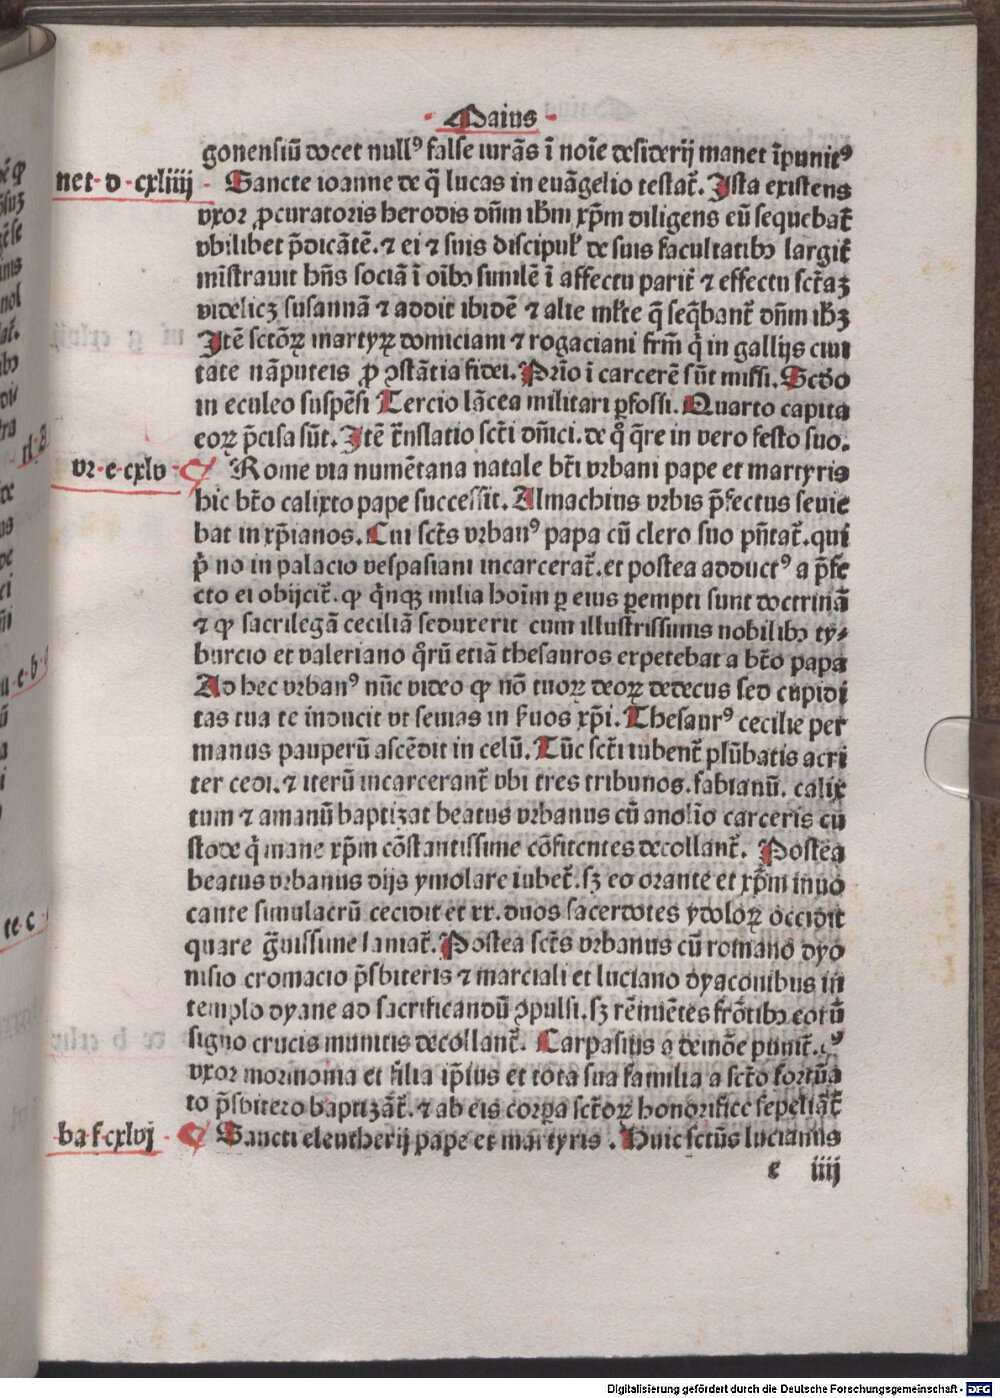 Maius
gonensiū docet null⁹ false iurās ī noīe desiderij manet īpunit⁹
net· d ·cxliiij · Sancte ioanne de q̄ lucas in euāgelio testat̄. Ista existens
vxor ꝓcuratoris herodis dn̄m ihm̄ xp̄m diligens eū sequebat̄
vbilibet p̄dicātē. ⁊ ei ⁊ suis discipul̕ de suis facultatibꝫ largit̄
mīstrauit hn̄s sociā ī oībꝫ similē ī affectu parit̄ ⁊ effectu sct̄aꝫ
videlicꝫ susannā ⁊ addit ibidē ⁊ alie ml̄te q̄ seq̄bant̄ dn̄m ihꝫ
Itē sctōꝝ martyꝝ domiciani ⁊ rogaciani frm̄ q̄ in gallijs ciui
tate nāputeis ꝓ ꝯstātia fidei. Prīo ī carcerē sūt missi. Scd̄o
in eculeo suspēsi Tercio lācea militari ꝑfossi. Quarto capita
eoꝝ p̄cisa sūt. Itē trn̄slatio sct̄i dn̄ici. de qͦ q̄re in vero festo suo.
vr· e ·cxlv · ¶ Rome via numētana natale bt̄i vrbani pape et martyris
hic bt̄o calixto pape successit. Almachius vrbis p̄fectus seuie
bat in xp̄ianos. Cui sct̄s vrban⁹ papa cū clero suo pn̄tat̄. qui
p̄ no in palacio vespasiani incarcerat̄. et postea adduct⁹ a p̄fe
cto ei obijcit̄. ꝙ q̄nqꝫ milia hoīm ꝑ eius ꝑempti sunt doctrinā
⁊ ꝙ sacrilegā ceciliā sedurerit cum illustrissimis nobilibꝫ ty⸗
burcio et valeriano q̄rū etiā thesauros expetebat a bt̄o papa
Ad hec vrban⁹ nūc video ꝙ nō tuoꝝ deoꝝ dedecus sed cupidi
tas tua te inducit vt seuias in s̄uos xp̄i. Thesaur⁹ cecilie per
manus pauperū ascēdit in celū. Tūc sct̄i iubent̄ plūbatis acri
ter cedi. ⁊ iterū incarcerant̄ vbi tres tribunos. fabianū. calix
tum ⁊ amanū baptizat beatus vrbanus cū anolio carceris cu
stode q̄ mane xp̄m cōstantissime cōfitentes decollant̄. Postea
beatus vrbanus dijs ymolare iubet̄. sꝫ eo orante et xp̄m inuo
cante simulacrū cecidit et xx. duos sacerdotes ydoloꝝ occidit
quare gͣuissime laniat̄. Postea sct̄s vrbanus cū romano dyo
nisio cromacio p̄sbiteris ⁊ marciali et luciano dyaconibus in
templo dyane ad sacrificandū ꝯpulsi. sꝫ reīnuētes frōtibꝫ eorū
signo crucis munitis decollant̄. Carpasius a demōe punit̄. c⁹
vxor morinoma et filia ip̄ius et tota sua familia a sct̄o fortūa
to p̄sbitero baptizāt̄. ⁊ ab eis corꝑa sct̄oꝝ honorifice sepeliāt̄
ba f cxlvj · ¶ Sancti eleutherij pape et martyris . Huic sctūs lucianus
e iiij
Digitalisierung gefördert durch die Deutsche Forschungsgemeinschaft - DFG